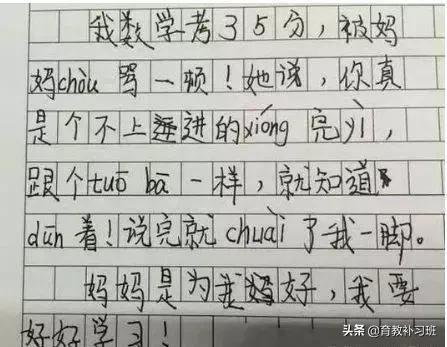 我数学考35分，被妈
妈chòu骂一顿！她说，你真
是个不上进的xióng完yì，
跟个tuō bā一样，就知道
dūn着！说完就chuài了我一脚。
妈妈是为我好，我要
好好学习！
头条 @育教补习班